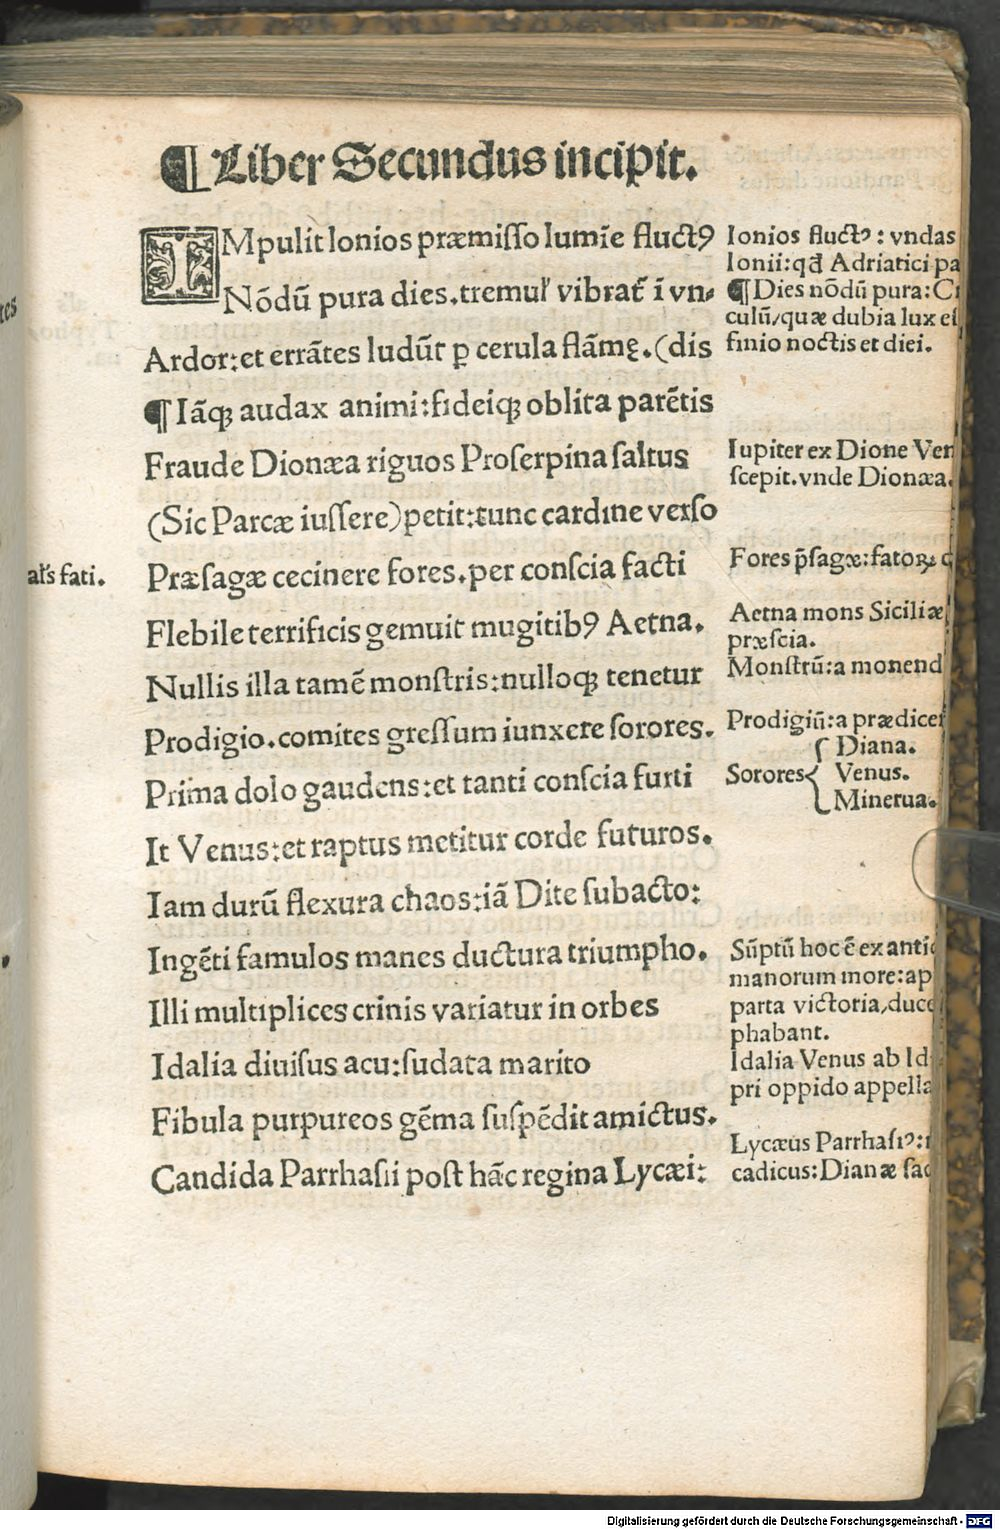 ¶ Liber Secundus incipit.
IMpulit Ionios præmiſſo lumīe fluctꝰ
Nōdū pura dies.tremul᷒ vibrat᷒ ī vn-
Ardor:et errātes ludūt᷒ ꝑ cerula flāmę.(dis
¶ Iāqꝫ audax animi:fideiqꝫ oblita parētis
Fraude Dionæa riguos Proſerpina ſaltus
(Sic Parcæ iuſſere)petit:tunc cardine verſo
Præſagæ cecinere fores.per conſcia facti
Flebile terrificis gemuit mugitibꝰ Aetna.
Nullis illa tamē monſtris:nulloqꝫ tenetur
Prodigio.comites greſſum iunxere ſorores.
Prima dolo gaudens:et tanti conſcia furti
It Venus:et raptus metitur corde futuros.
Iam durū flexura chaos:iā Dite ſubacto:
Ingēti famulos manes ductura triumpho.
Illi multiplices crinis variatur in orbes
Idalia diuiſus acu:ſudata marito
Fibula purpureos gēma ſuſpēdit amictus.
Candida Parrhaſii poſt hāc regina Lycæi:
ſati.
Ionios fluctꝰ: vndas
Ionii:qd̄ Adriatici pa
¶ Dies nōdū pura:
culū/quæ dubia lux
finio noctis et diei.
Iupiter ex Dione Ven
ſcepit.vnde Dionæa.
Fores p̄ſagæ:fatoꝝ
Aetna mons Siciliæ
præſcia.
Monſtrū:a monend
Prodigiū:a prædicen
Sorores { Diana.
Venus.
Minerua.
Sūptū hoc ē ex anti
manorum more:ap
parta victoria/duce
phabant.
Idalia Venus ab Id
pri oppido appella
Lycæus Parrhaſiꝰ:
cadicus:Dianæ ſac
Digitalisierung gefördert durch die Deutsche Forschungsgemeinschaft - DFG